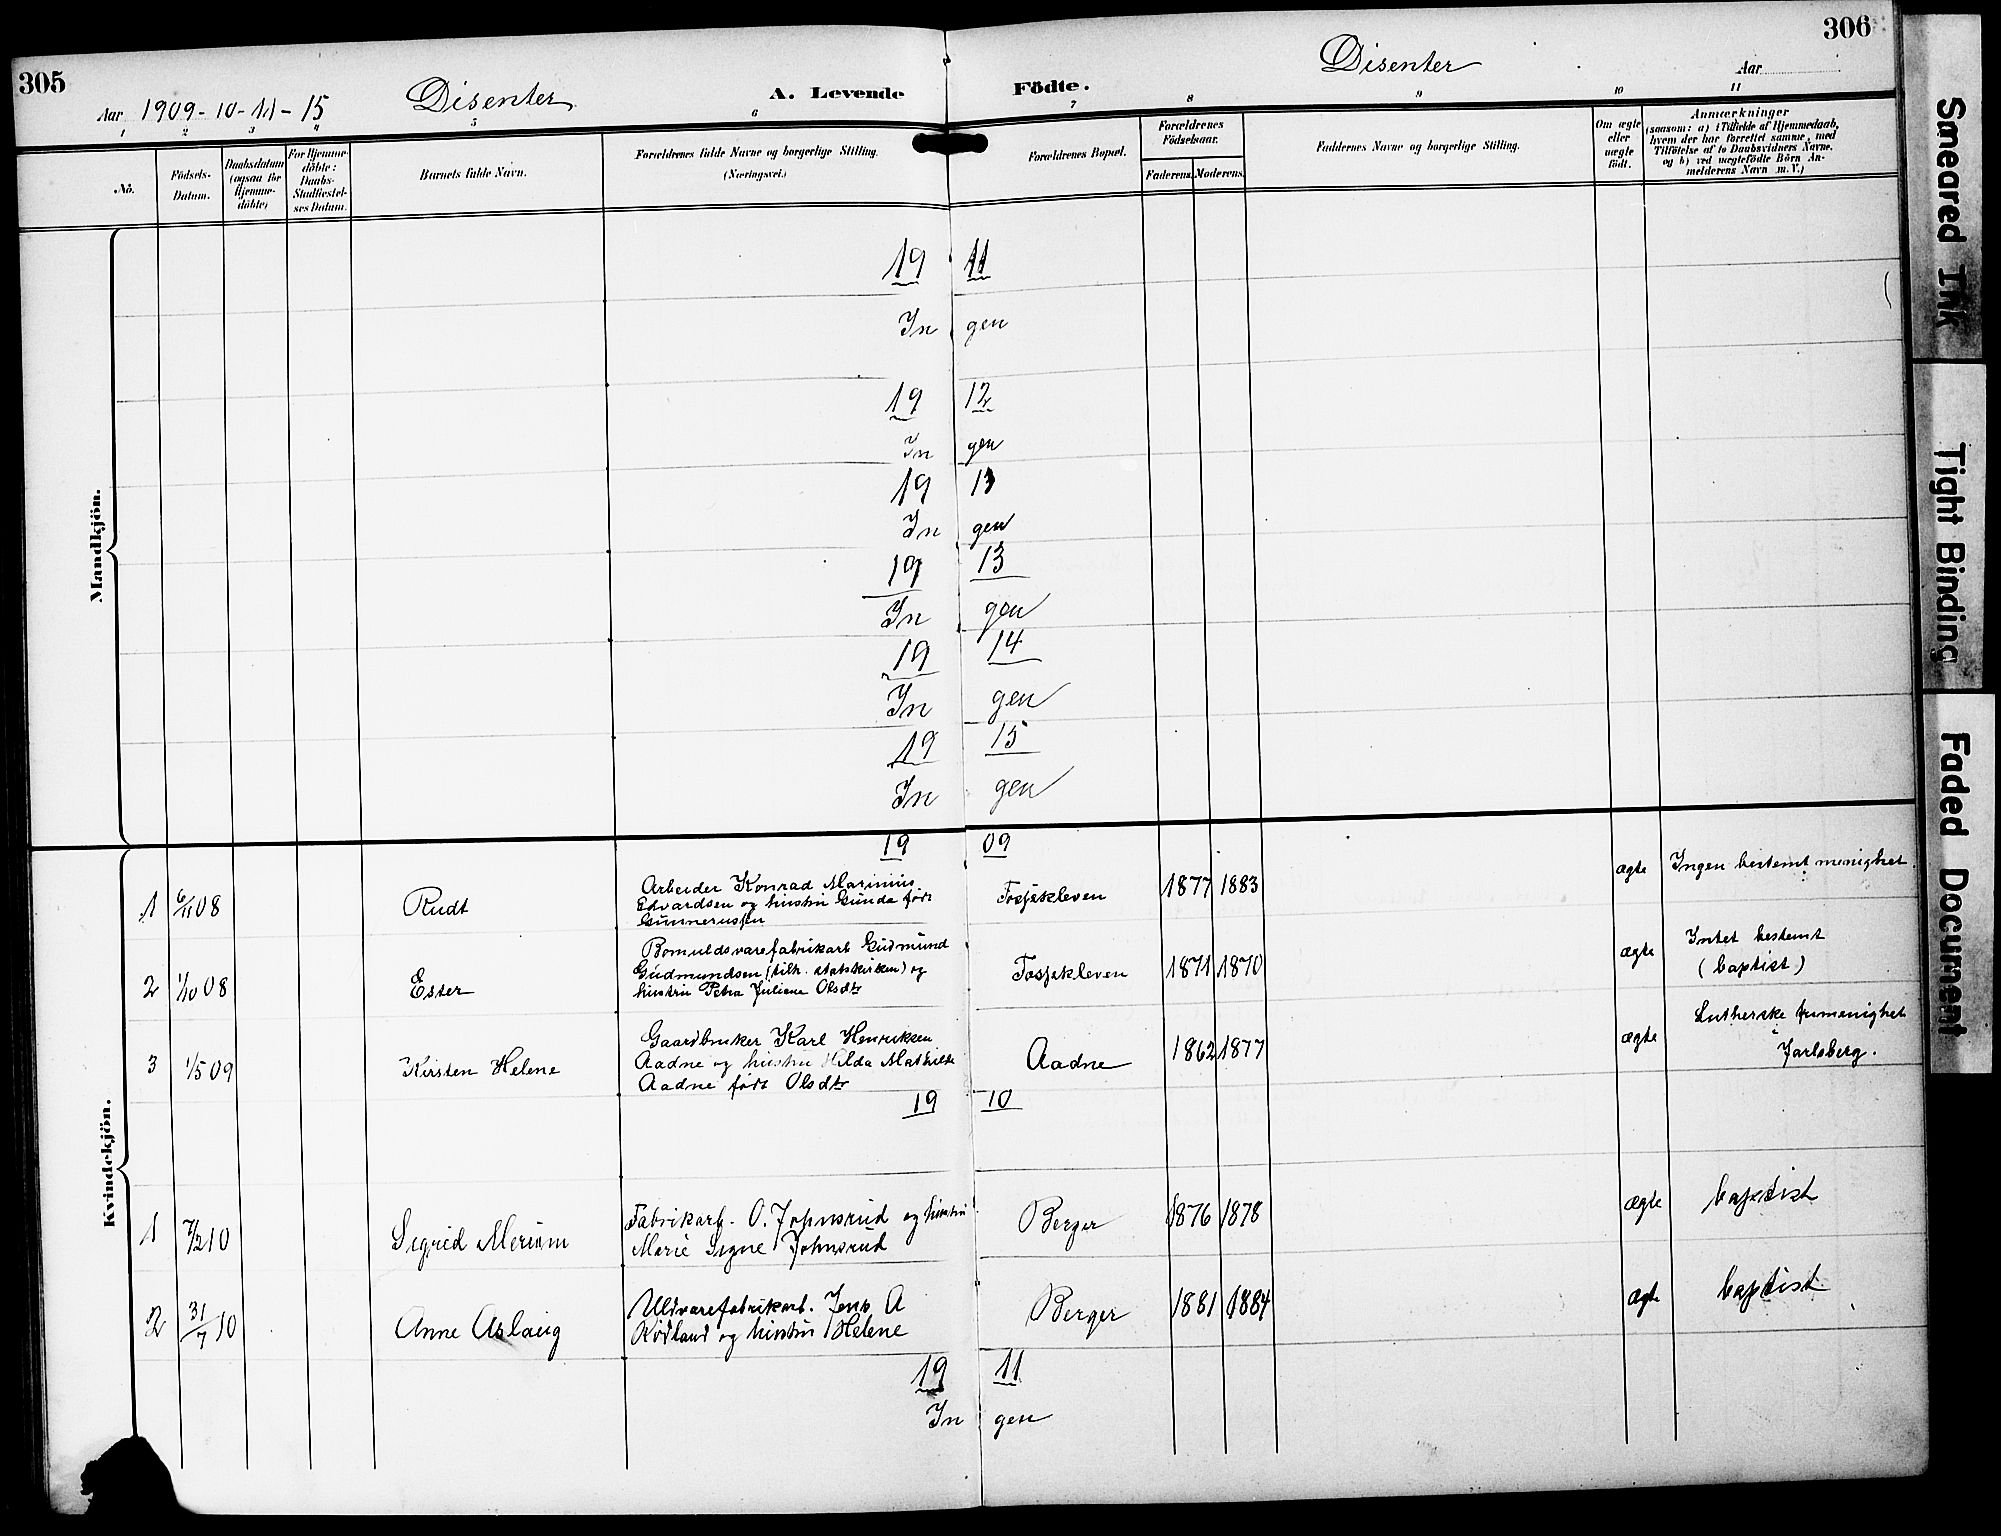 305
Aar 1909-10-11-15
Disenter
A. Levende
Födte.
Disenter
Aar
306
1 2 3 4 5 6 7 8 9 10 11
No.
Födsels-
Datum.
Daabsdatum
(ogsaa for
Hjemme-
döbte)
For Hjemme-
döbte:
Daabs-
Stadfæstel-
ses Datum.
Barnets fulde Navn.
Forældrenes fulde Navne og borgerlige Stilling.
(Næringsvei.)
Forældrenes Bopæl.
Forældrenes
Födselsaar.
Faderens. Moderens.
Faddernes Navne og borgerlige Stilling.
Om ægte
eller
uægte
födt.
Anmærkninger
(saasom: a) i Tilfælde af Hjemmedaab,
hvem der har forrettet samme, med
Tilföielse af to Daabsvidners Navne.
og b) ved uægtefödte Börn An-
melderens Navn m. V.)
Mandkjön.
19 11
In gen
19 12
In gen
19 13
In gen
19 13
In gen
19 14
In gen
19 15
In gen
Kvindekjön.
19 09
1 6/11 08 Rudt
Arbeider Konrad Marinius
Edvardsen og hustru Gunda født
Gunnerussen
Fosjekleven 1877 1883 ægte Ingen bestemt menighet
2 1/10 08 Ester
Bomuldsvarefabrikarb Gudmund
Gudmundsen (tilh. statskirken) og
hustru Petra Juliane Olsdtr
Fosjekleven 1871 1870 ægte Intet bestemt
(baptist)
3 1/5 09 Kirsten Helene
Gaardbruker Karl Henriksen
Aadne og hustru Hilda Mathilde
Aadne født Olsdtr
Aadne 1862 1877 ægte Lutherske frimenighet
i
Jarlsberg.
19 10
1 7/2 10 Sigrid Meriam
Fabrikarb. O. Johnsrud og hustru
Marie Signe Johnsrud
Berger 1876 1878 ægte baptist
2 31/7 10 Anne Aslaug
Uldvarefabrikarb. Jens A
Rødland og hustru Helene
Berger 1881 1884 ægte baptist
19 11
In gen
Smeared Ink
Tight Binding
Faded Document